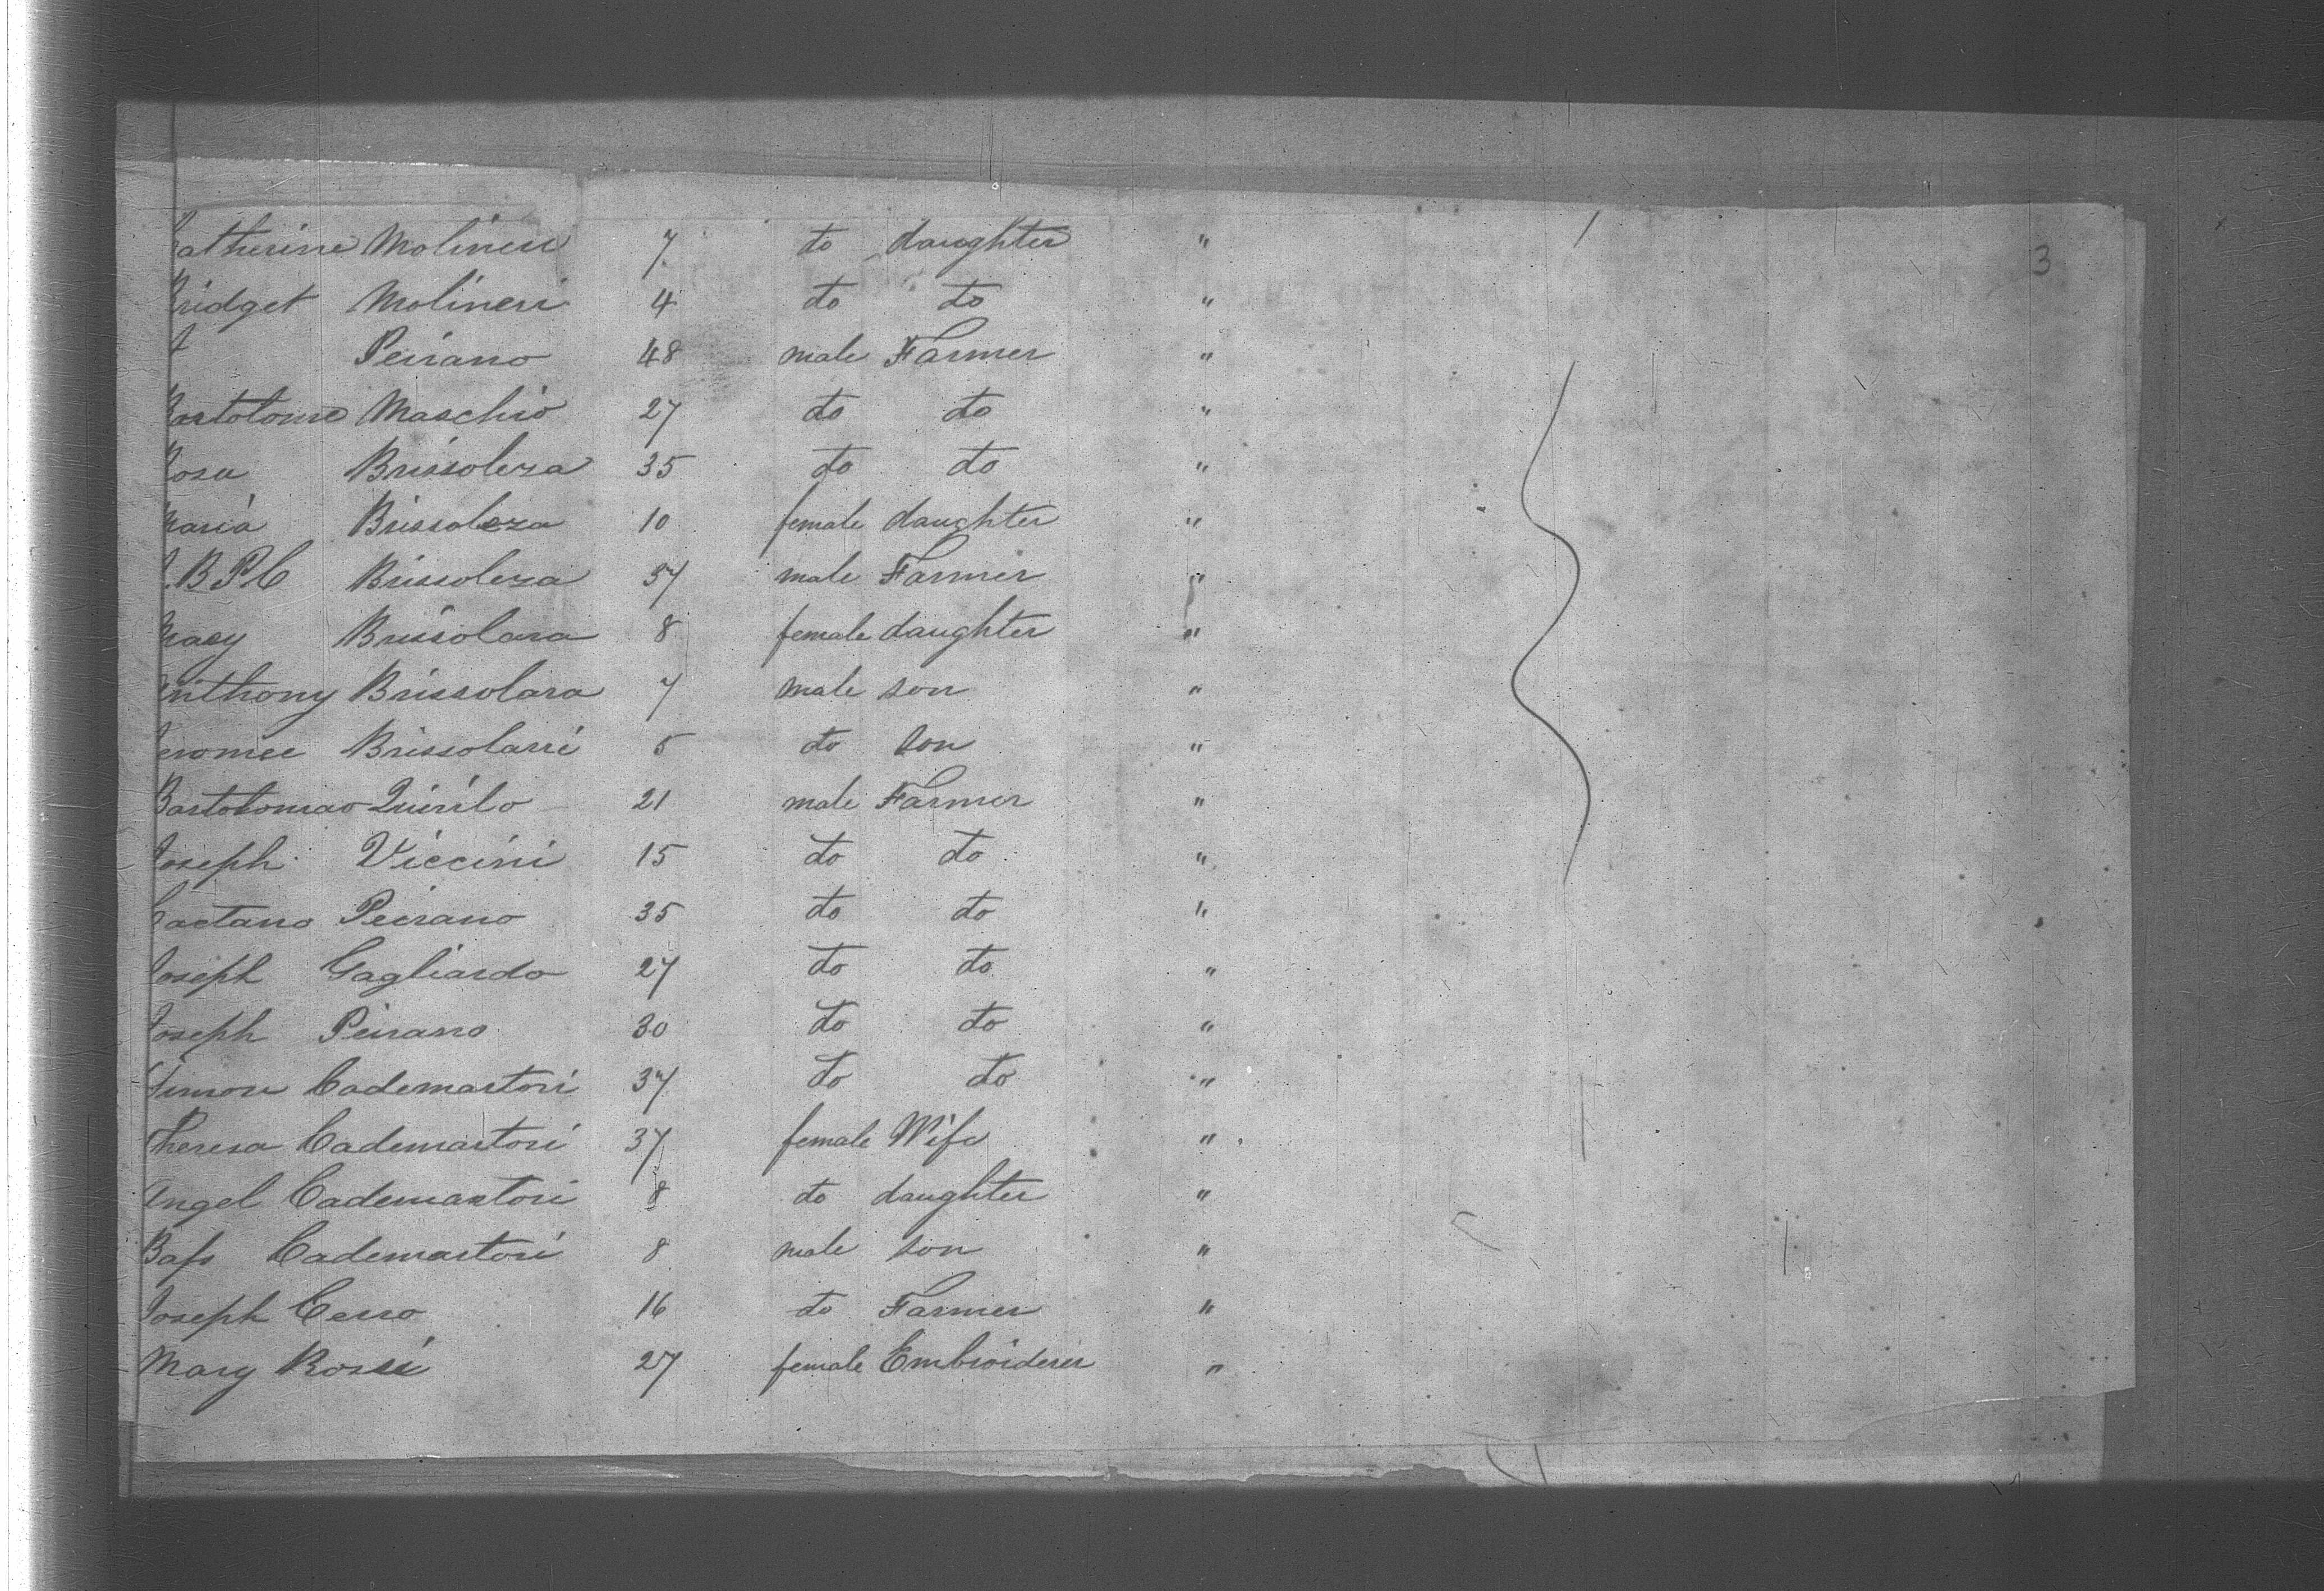 Catherine Molineri 7 do daughter "
3
Bridget Molineri 4 do do "
Peirano 48 male Farmer "
Bartolome Maschio 27 do do "
Rosa Brissoleza 35 do do "
Maria Brissoleza 10 female daughter "
B. P. C Brissoleza 37 male Farmer "
Mary Brissolara 8 female daughter "
Anthony Brissolara 7 male son "
Jeromee Brissolarri 5 do son "
Bartolomao 21 male Farmer "
Joseph Viccini 15 do do "
Gaetano Peirano 35 do do "
Joseph Gagliardo 27 do do "
Joseph Peirano 30 do do "
Simon Cademartori 37 do do "
Theresa Cademartori 37 female Wife "
Angel Cademartori 8 do daughter "
Bafs Cademartori 8 male son "
Joseph Cerro 16 do Farmer "
Mary Rossi 27 female Embroiderer "